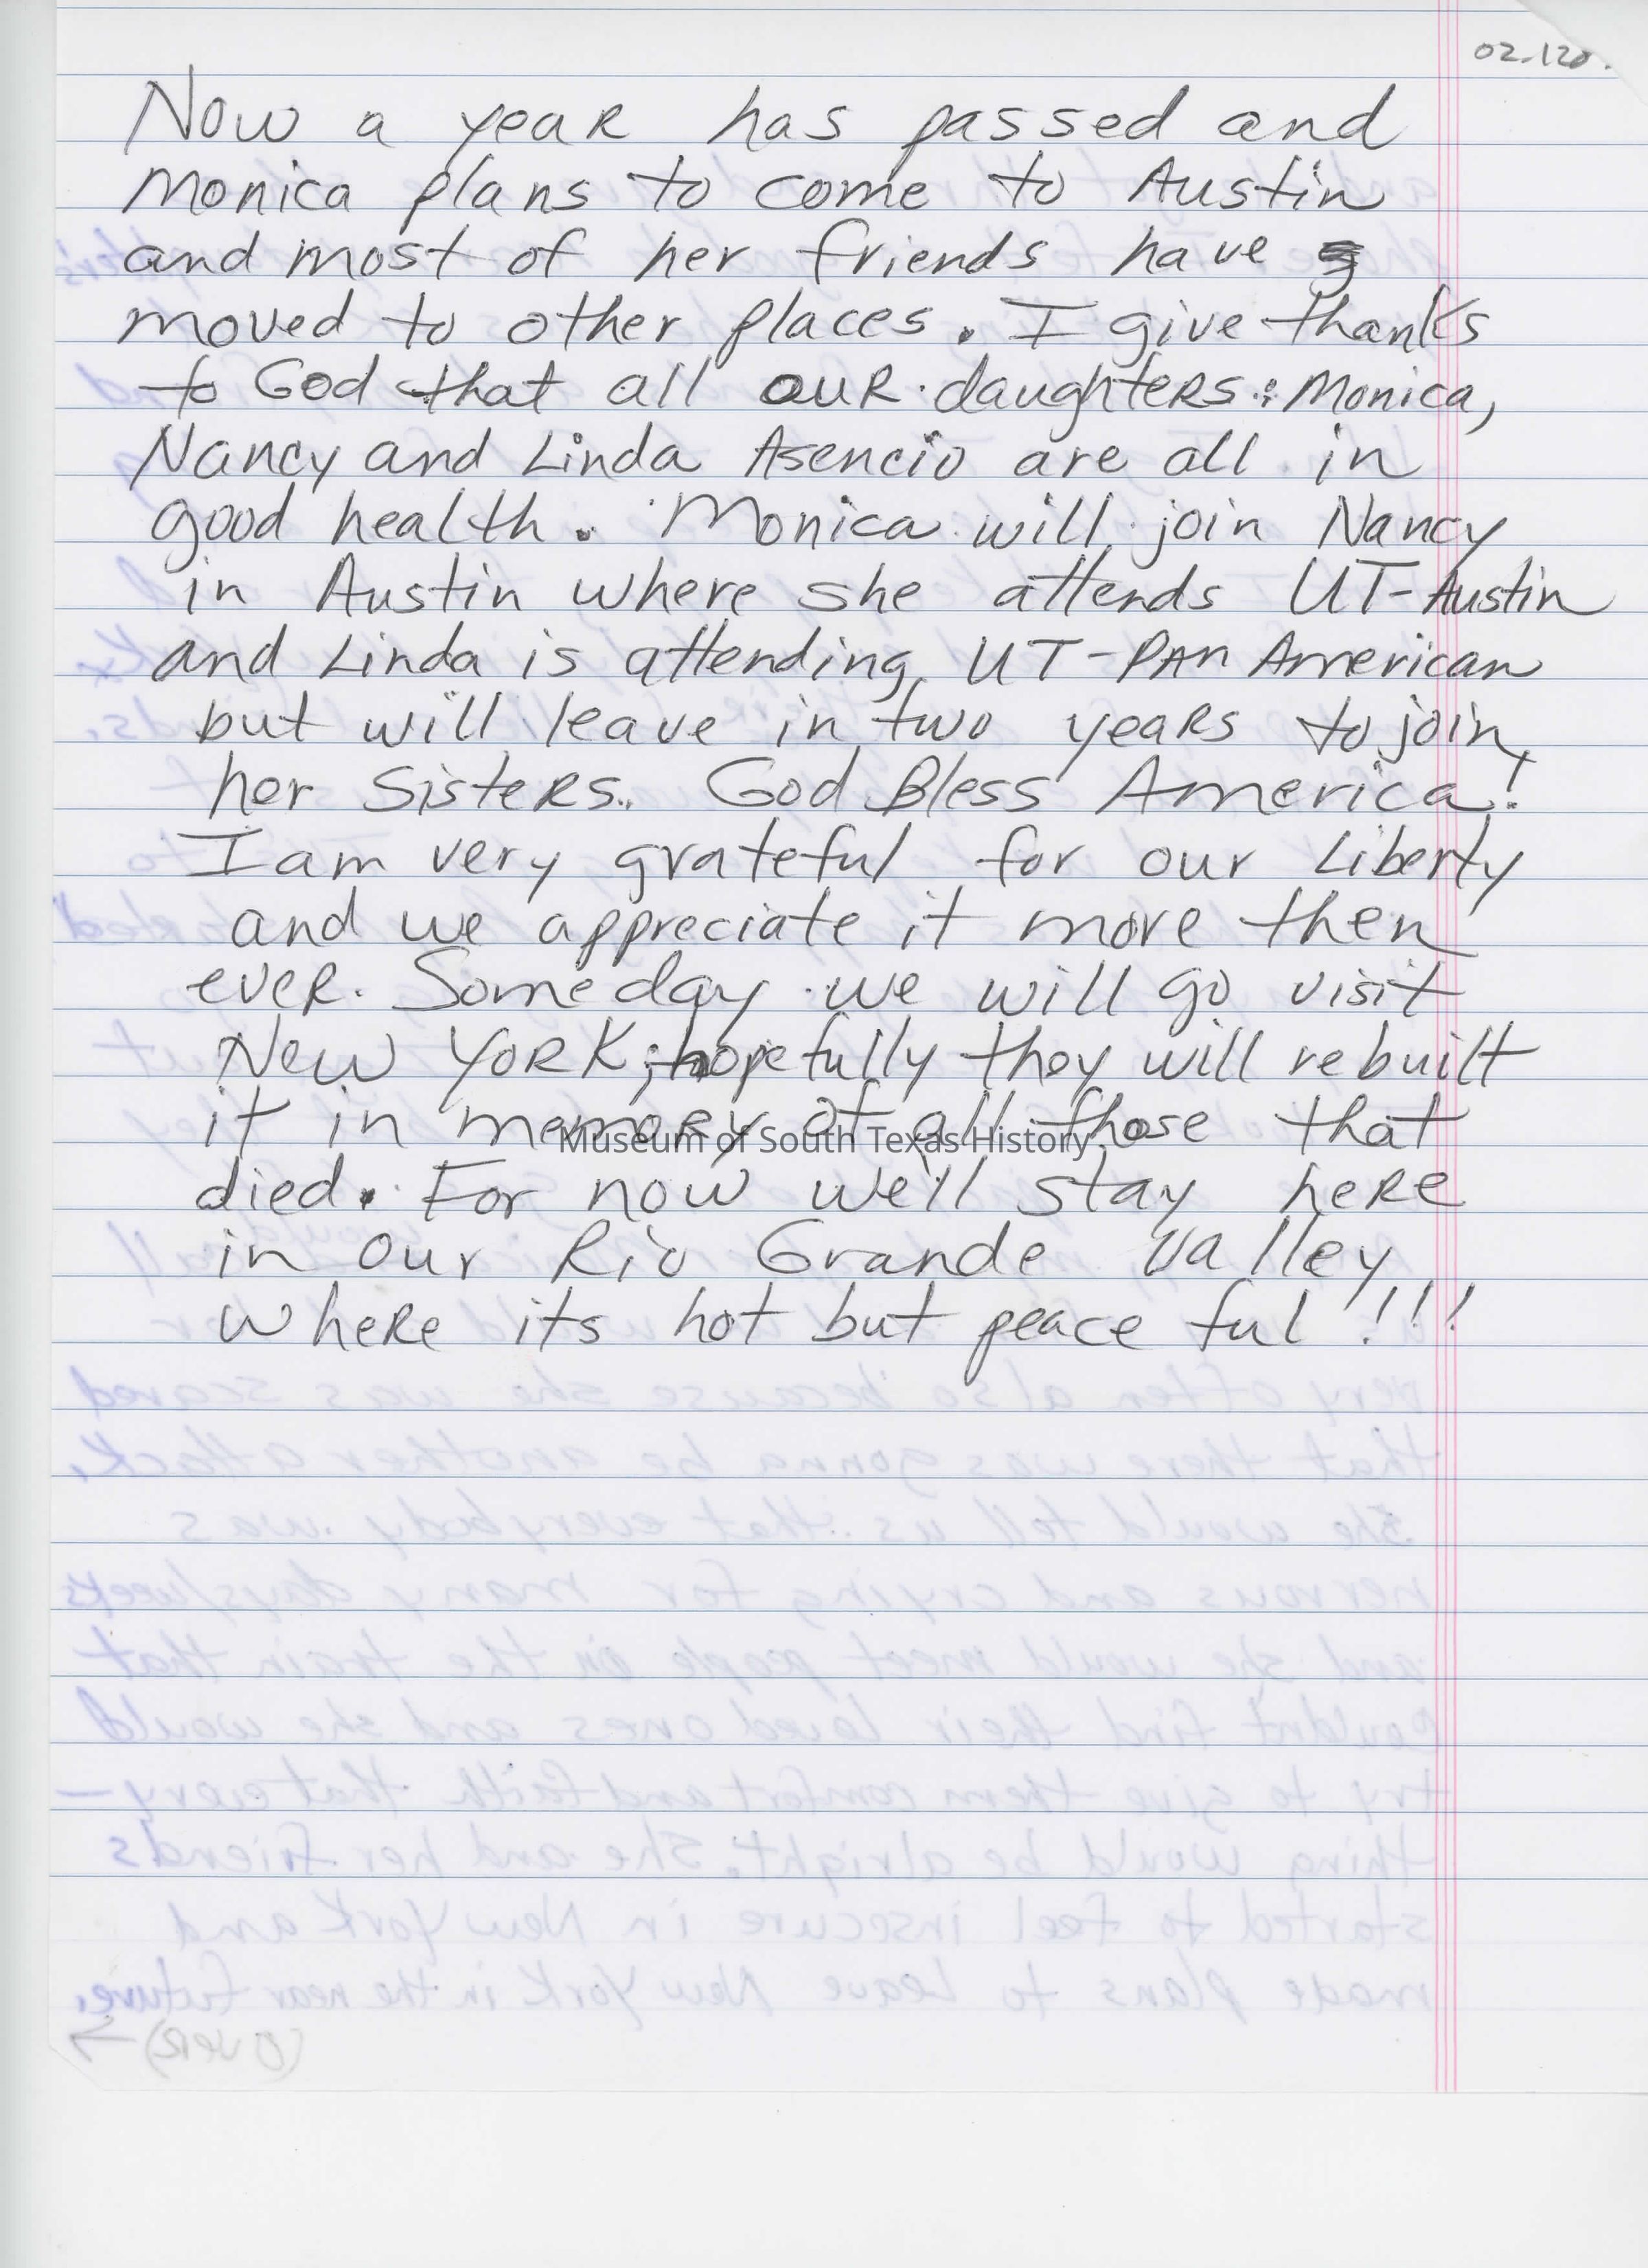 02.120.
Now a year has passed and
Monica plans to come to Austin
and most of her friends have
moved to other places. I give thanks
to God that all our daughters: Monica,
Nancy and Linda Asencio are all in
good health. Monica will join Nancy
in Austin where she attends UT-Austin
and Linda is attending UT-Pan American
but will leave in two years to join
her Sisters. God Bless America!
I am very grateful for our Liberty
and we appreciate it more then
ever. Someday we will go visit
New York; hopefully they will rebuilt
it in memory of all those that
Museum of South Texas History
died. For now we'll stay here
in our Rio Grande Valley
where its hot but peaceful!!!
very often also because she was scared
that there was gonna be another attack.
She would tell us that everybody was
nervous and crying for many days/weeks
and she would meet people on the train that
couldnt find their loved ones and she would
try to give them comfort and faith that every-
thing would be alright. She and her friends
started to feel insecure in New York and
made plans to leave New York in the near future.
(OVER) →